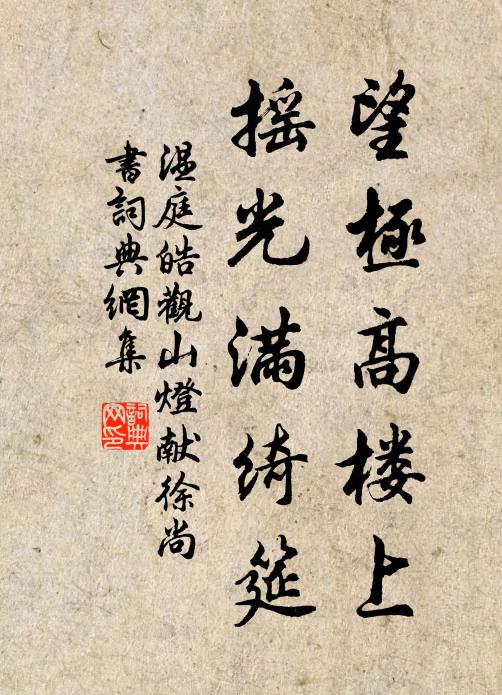 望極高楼上
摇光满綺筵
温庭皓觀山燈献徐尚
書詞典網集
詞典
网印